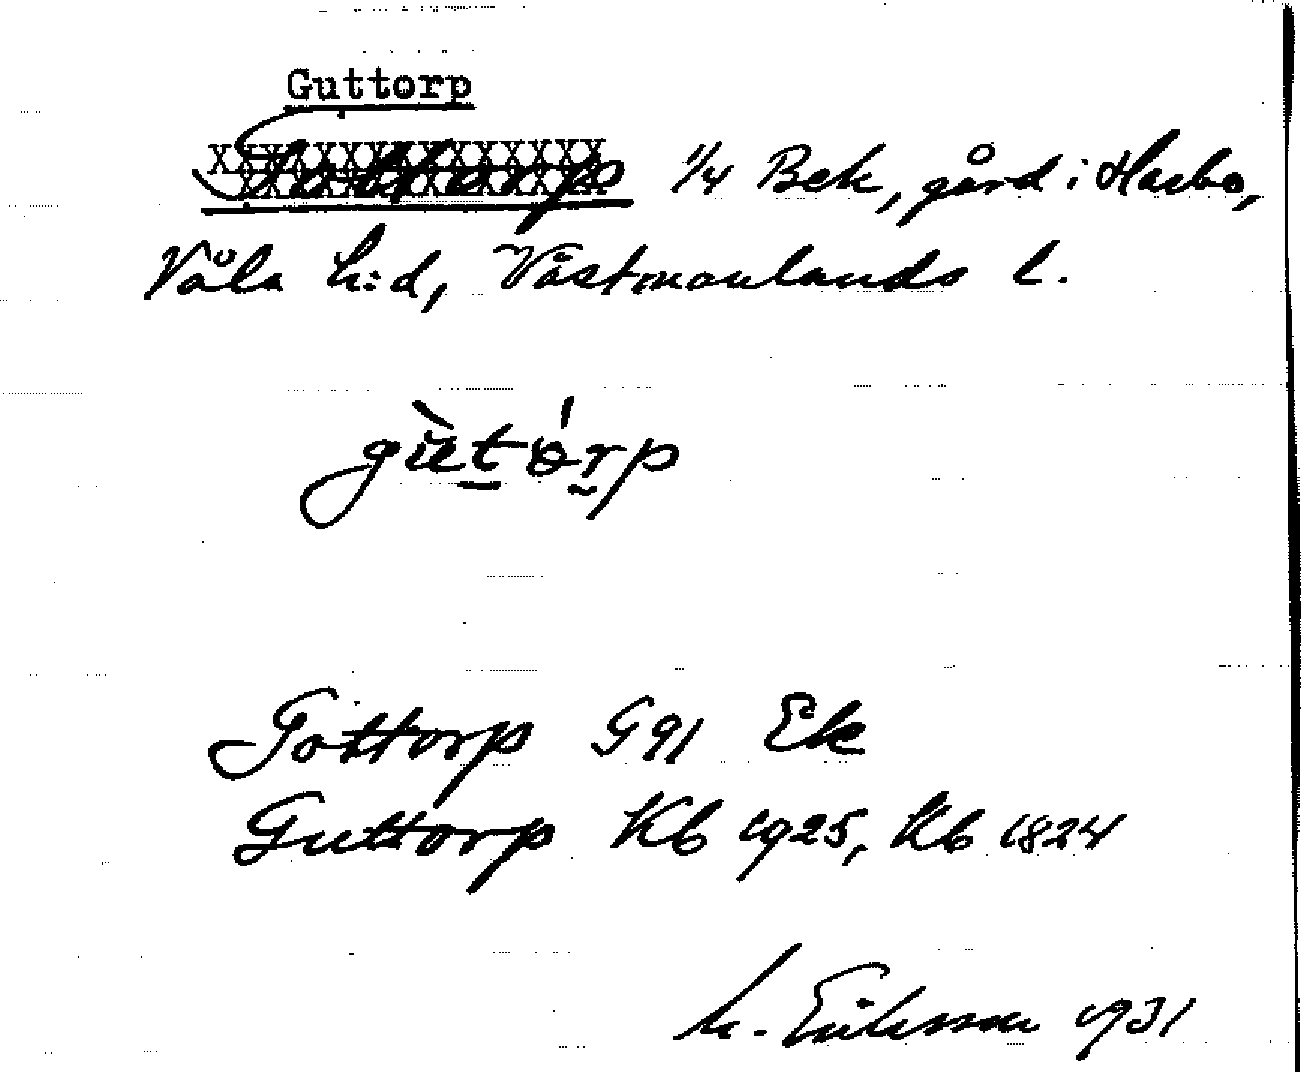 Guttorp
Gottorp 1/4 Bek, gård i Harbo,
Våla h:d, Västmanlands l.
gùtórp
Gottorp G 91 Ek
Guttorp Kb 1925, Kb 1824
M. Eriksson 1931